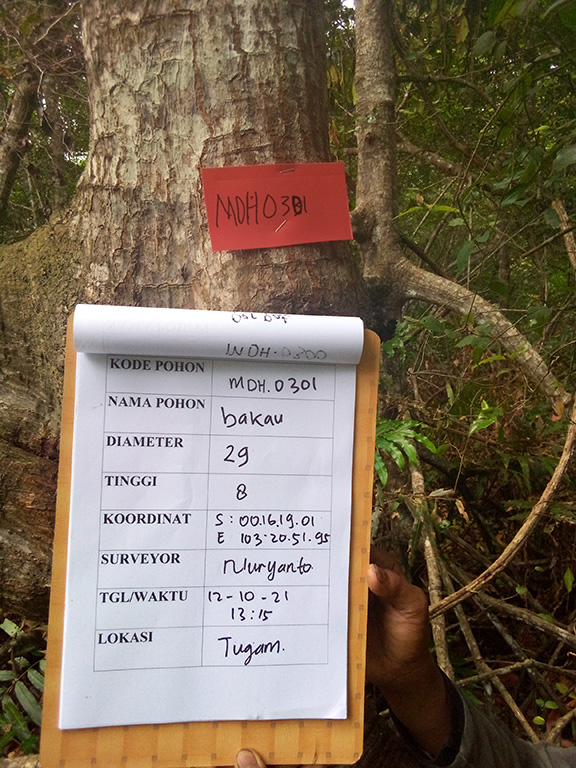 MDH0301
MDH.0300
KODE POHON MDH.0301
NAMA POHON bakau
DIAMETER 29
TINGGI 8
KOORDINAT S : 00.16.19.01
E 103:20.51.95
SURVEYOR Nuryanto
TGL/WAKTU 12-10-21
13:15
LOKASI Tugam.